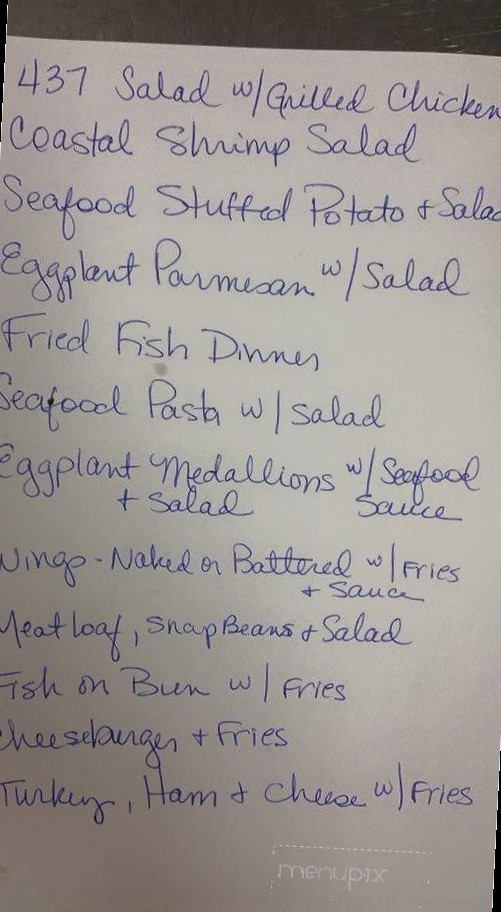 437 Salad w/Grilled Chicken
Coastal Shrimp Salad
Seafood Stuffed Potato + Salad
Eggplant Parmesan w/Salad
Fried Fish Dinner
Seafood Pasta w/Salad
Eggplant Medallions w/Seafood
+ Salad Sauce
Wings - Naked or Battered w/Fries
+ Sauce
Meatloaf, Snap Beans + Salad
Fish on Bun w/ Fries
Cheeseburger + Fries
Turkey, Ham + Cheese w/Fries
menupix